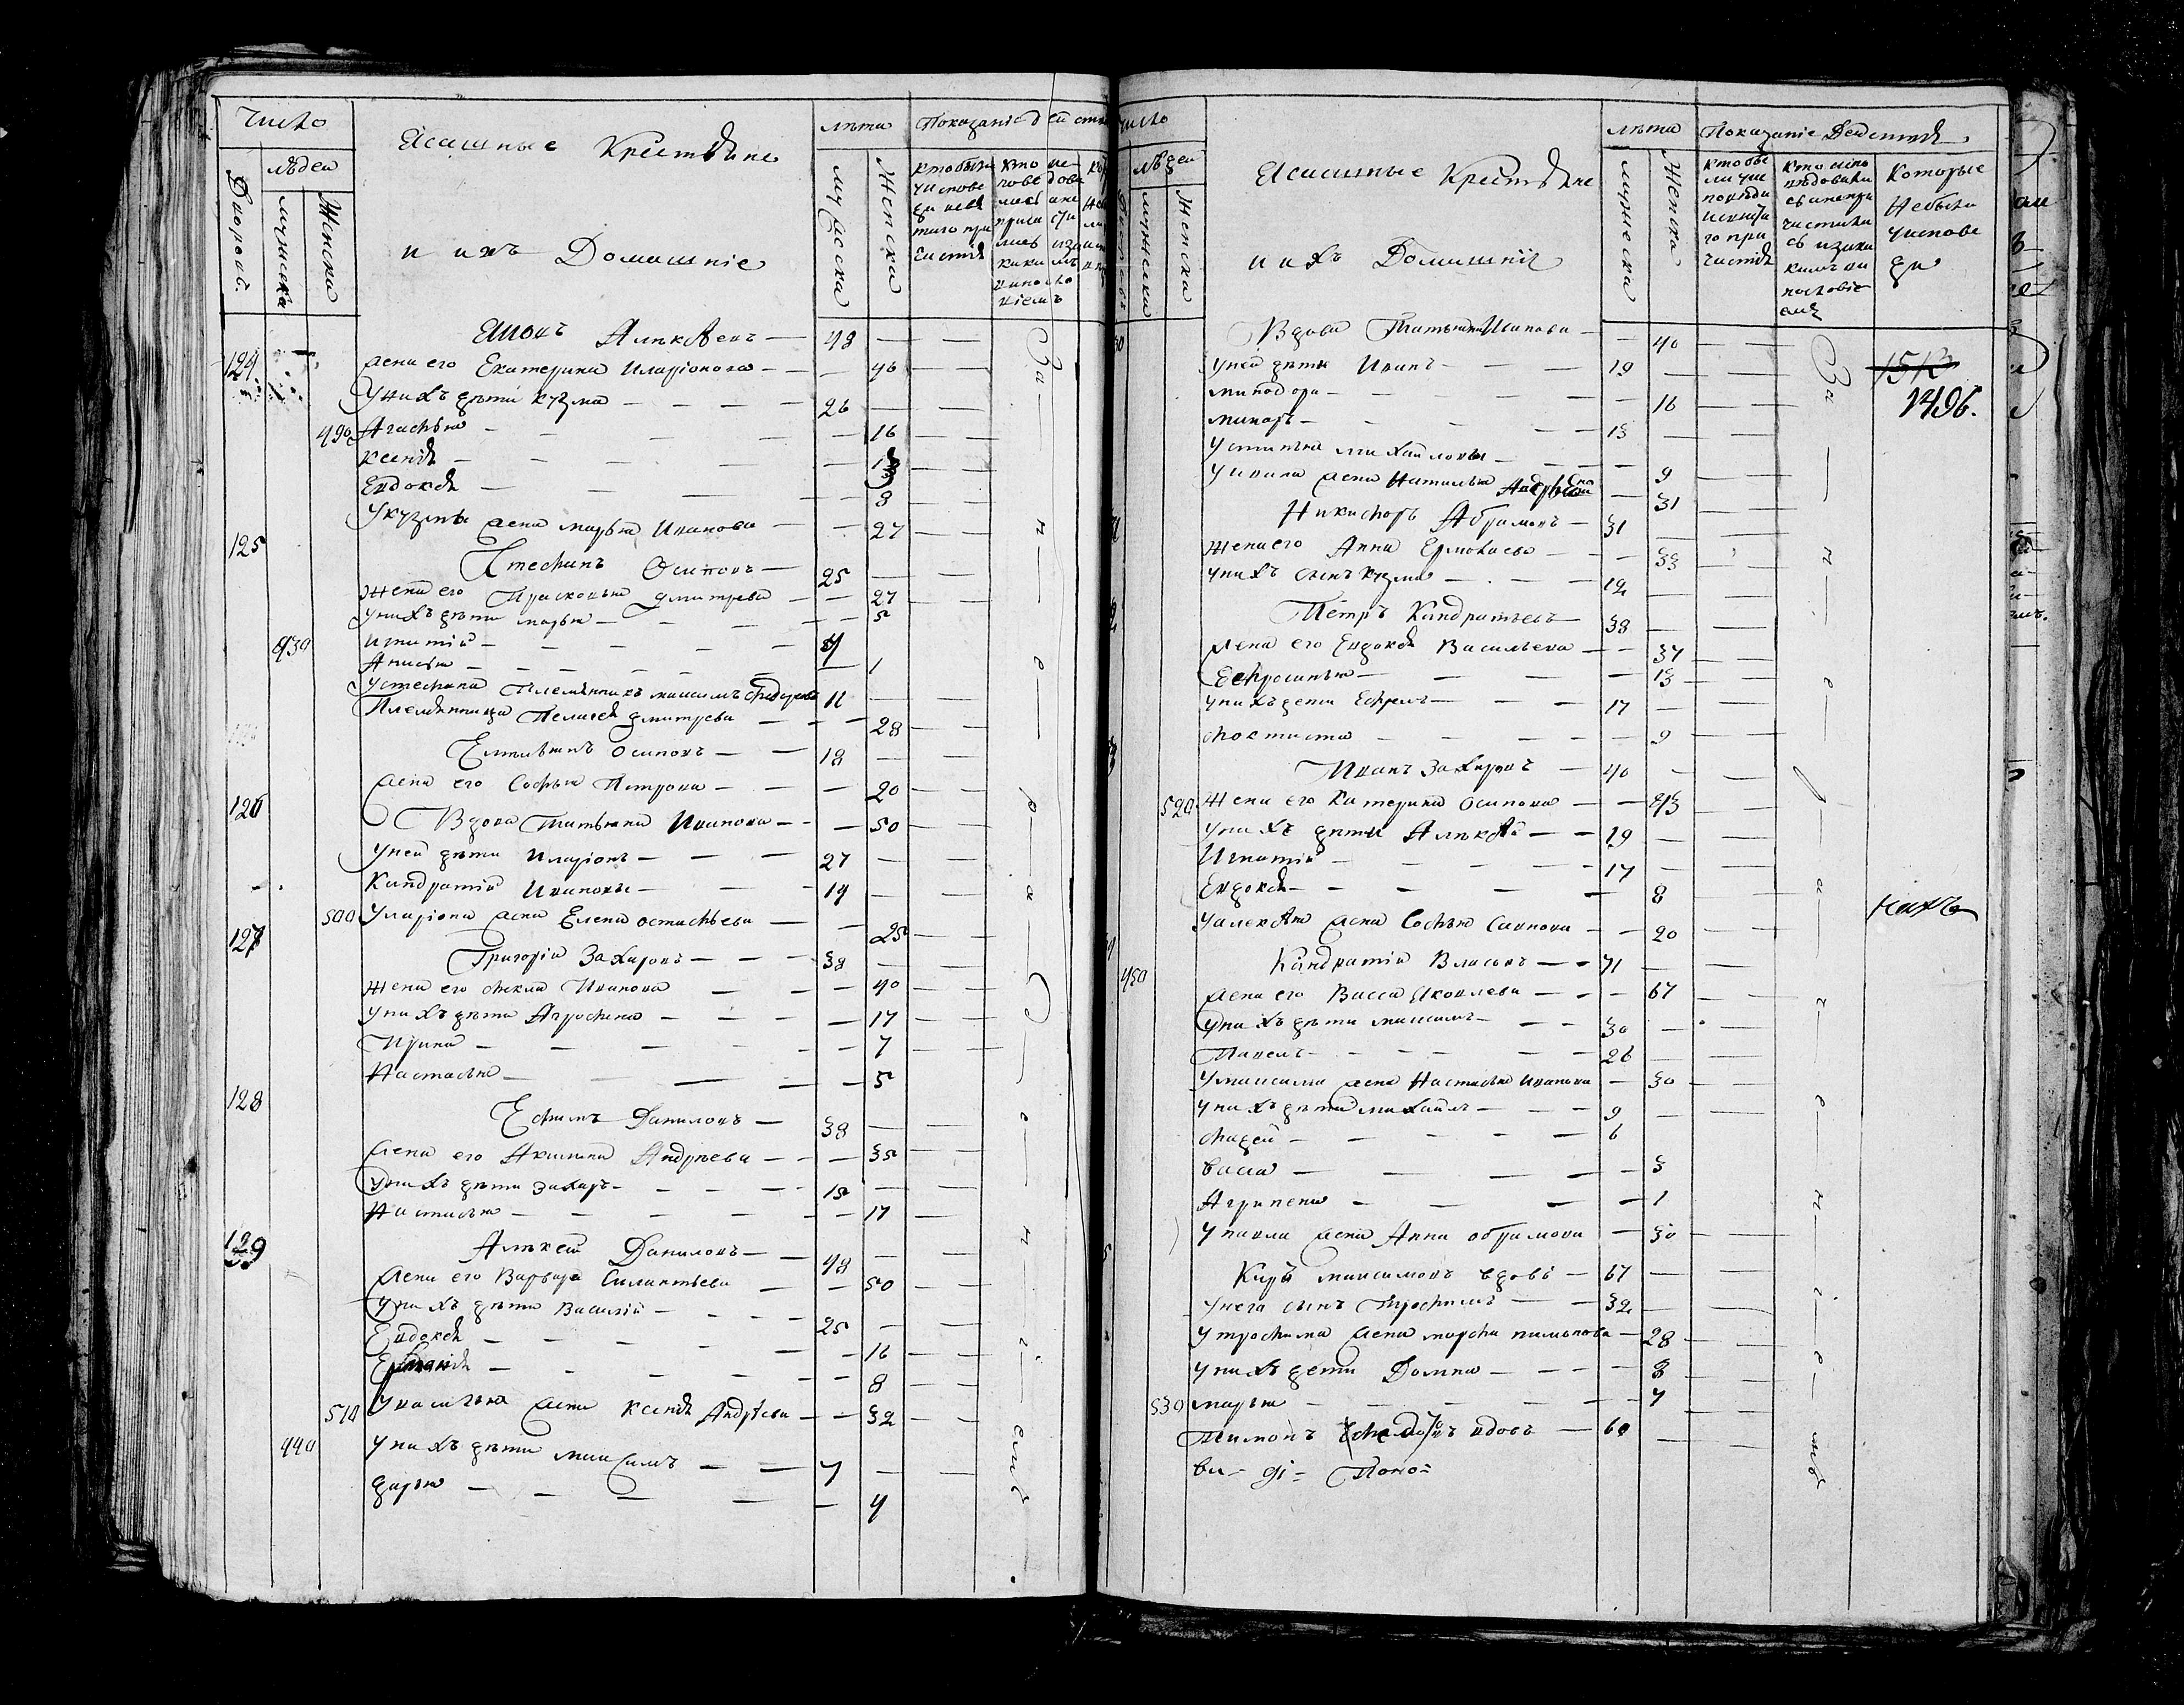 Число
людей
Дворовъ.
мужеска
Женска
Ясашные Крестьяне
и ихъ Домашніе
лѣта
мужеска
Женска
Показаніе д ей ств
кто были
у исповѣ
ди и свя
таго при
частія
кто ис
повѣдова
лись а не
прича сти
лись
каки мъ
виносло
віемъ
Алексѣевъ — 48
124 жена его Екатерина Иларіонова — 46
У нихъ дѣти Кузма — 26
490 Агафья — 16
Ксенія — 13
Евдокія — 8
У кузмы жена марья Иванова — 27
125 Стефанъ Осиповъ — 25
Жена его Прасковья дмитрева — 27
У нихъ дѣти марья — 5
430 Игнатій — 4
Анисья — 1
У стефана Племянникъ максимъ — 11
Племянница Пелагея дмитрева — 28
Емельянъ Осиповъ — 18
жена его Софья Петрова — 20
126 Вдова Татьяна Иванова — 50
У ней дѣти Иларіонъ — 27
Кандратій Ивановы — 14
500 У ларіона жена Елена остафьева — 25
127 Григорій Захаровъ — 38
жена его фекла Иванова — 40
У нихъ дѣти Агрофена — 17
Ирина — 7
Настасья — 5
128 Ефимъ Даниловъ — 38
жена его Акилина Андреева — 35
У нихъ дѣти захаръ — 15
Настасья — 17
129 Алексей Даниловъ — 48
жена его Варвара Силантьева — 50
У нихъ дѣти Василій — 25
Евдокія — 16
8
510 У василья жена Ксенія Андрѣева — 32
440 У нихъ дѣти максимъ — 7
дарья — 4
За
н
е
р
а
д
е
н
і
емъ
число
людей
мужеска
Женска
Ясашные Крестьяне
и ихъ Домашніе
лѣта
мужеска
Женска
Показаніе Действія
кто бы
ли у ис
повѣди
и свята
го при
частія
кто испо
вѣдовали
сь а не при
частили
сь и за ка
кимъ ви
нословіе
мъ
Которые
Небыли
у исповѣ
ди
Вдова Татьяна Иванова — 40
У ней дѣти Иванъ — 19
минодора — 16
макаръ — 13
Устинья михайловы — 9
У ивана жена Наталья Андрѣева — 31
Никифоръ Абрамовъ — 31
жена его Анна Ермолаева — 33
у нихъ сынъ Кузма — 12
Петръ Кандратьевъ — 38
жена его Евдокія Васильева — 37
Ефросинья — 13
у нихъ дети Ефремъ — 17
фоктиста — 9
Иванъ Захаровъ — 40
520 Жена его Катерина Осипова — 43
У нихъ дѣти Алексѣй — 19
Игнатій — 17
Евдокія — 8
У алексѣя жена Софья Савнова — 20
Кандратій Власовъ — 71
450 жена его Васса Яковлева — 67
У нихъ дѣти максимъ — 30
Павелъ — 26
У максима жена Настасья Иванова — 30
У нихъ дѣти михайлъ — 9
фадей — 6
васса — 3
Агрипена — 1
У павла жена Анна обрамова — 30
Киръ максимовъ вдовъ — 67
У него сынъ Трофимъ — 32
У трофима жена марфа пиманова — 28
у нихъ дети Домна — 8
530 марья — 7
Пимонъ вдовъ — 60
За
н
е
р
а
д
е
н
і
е
мъ
1513
1496.